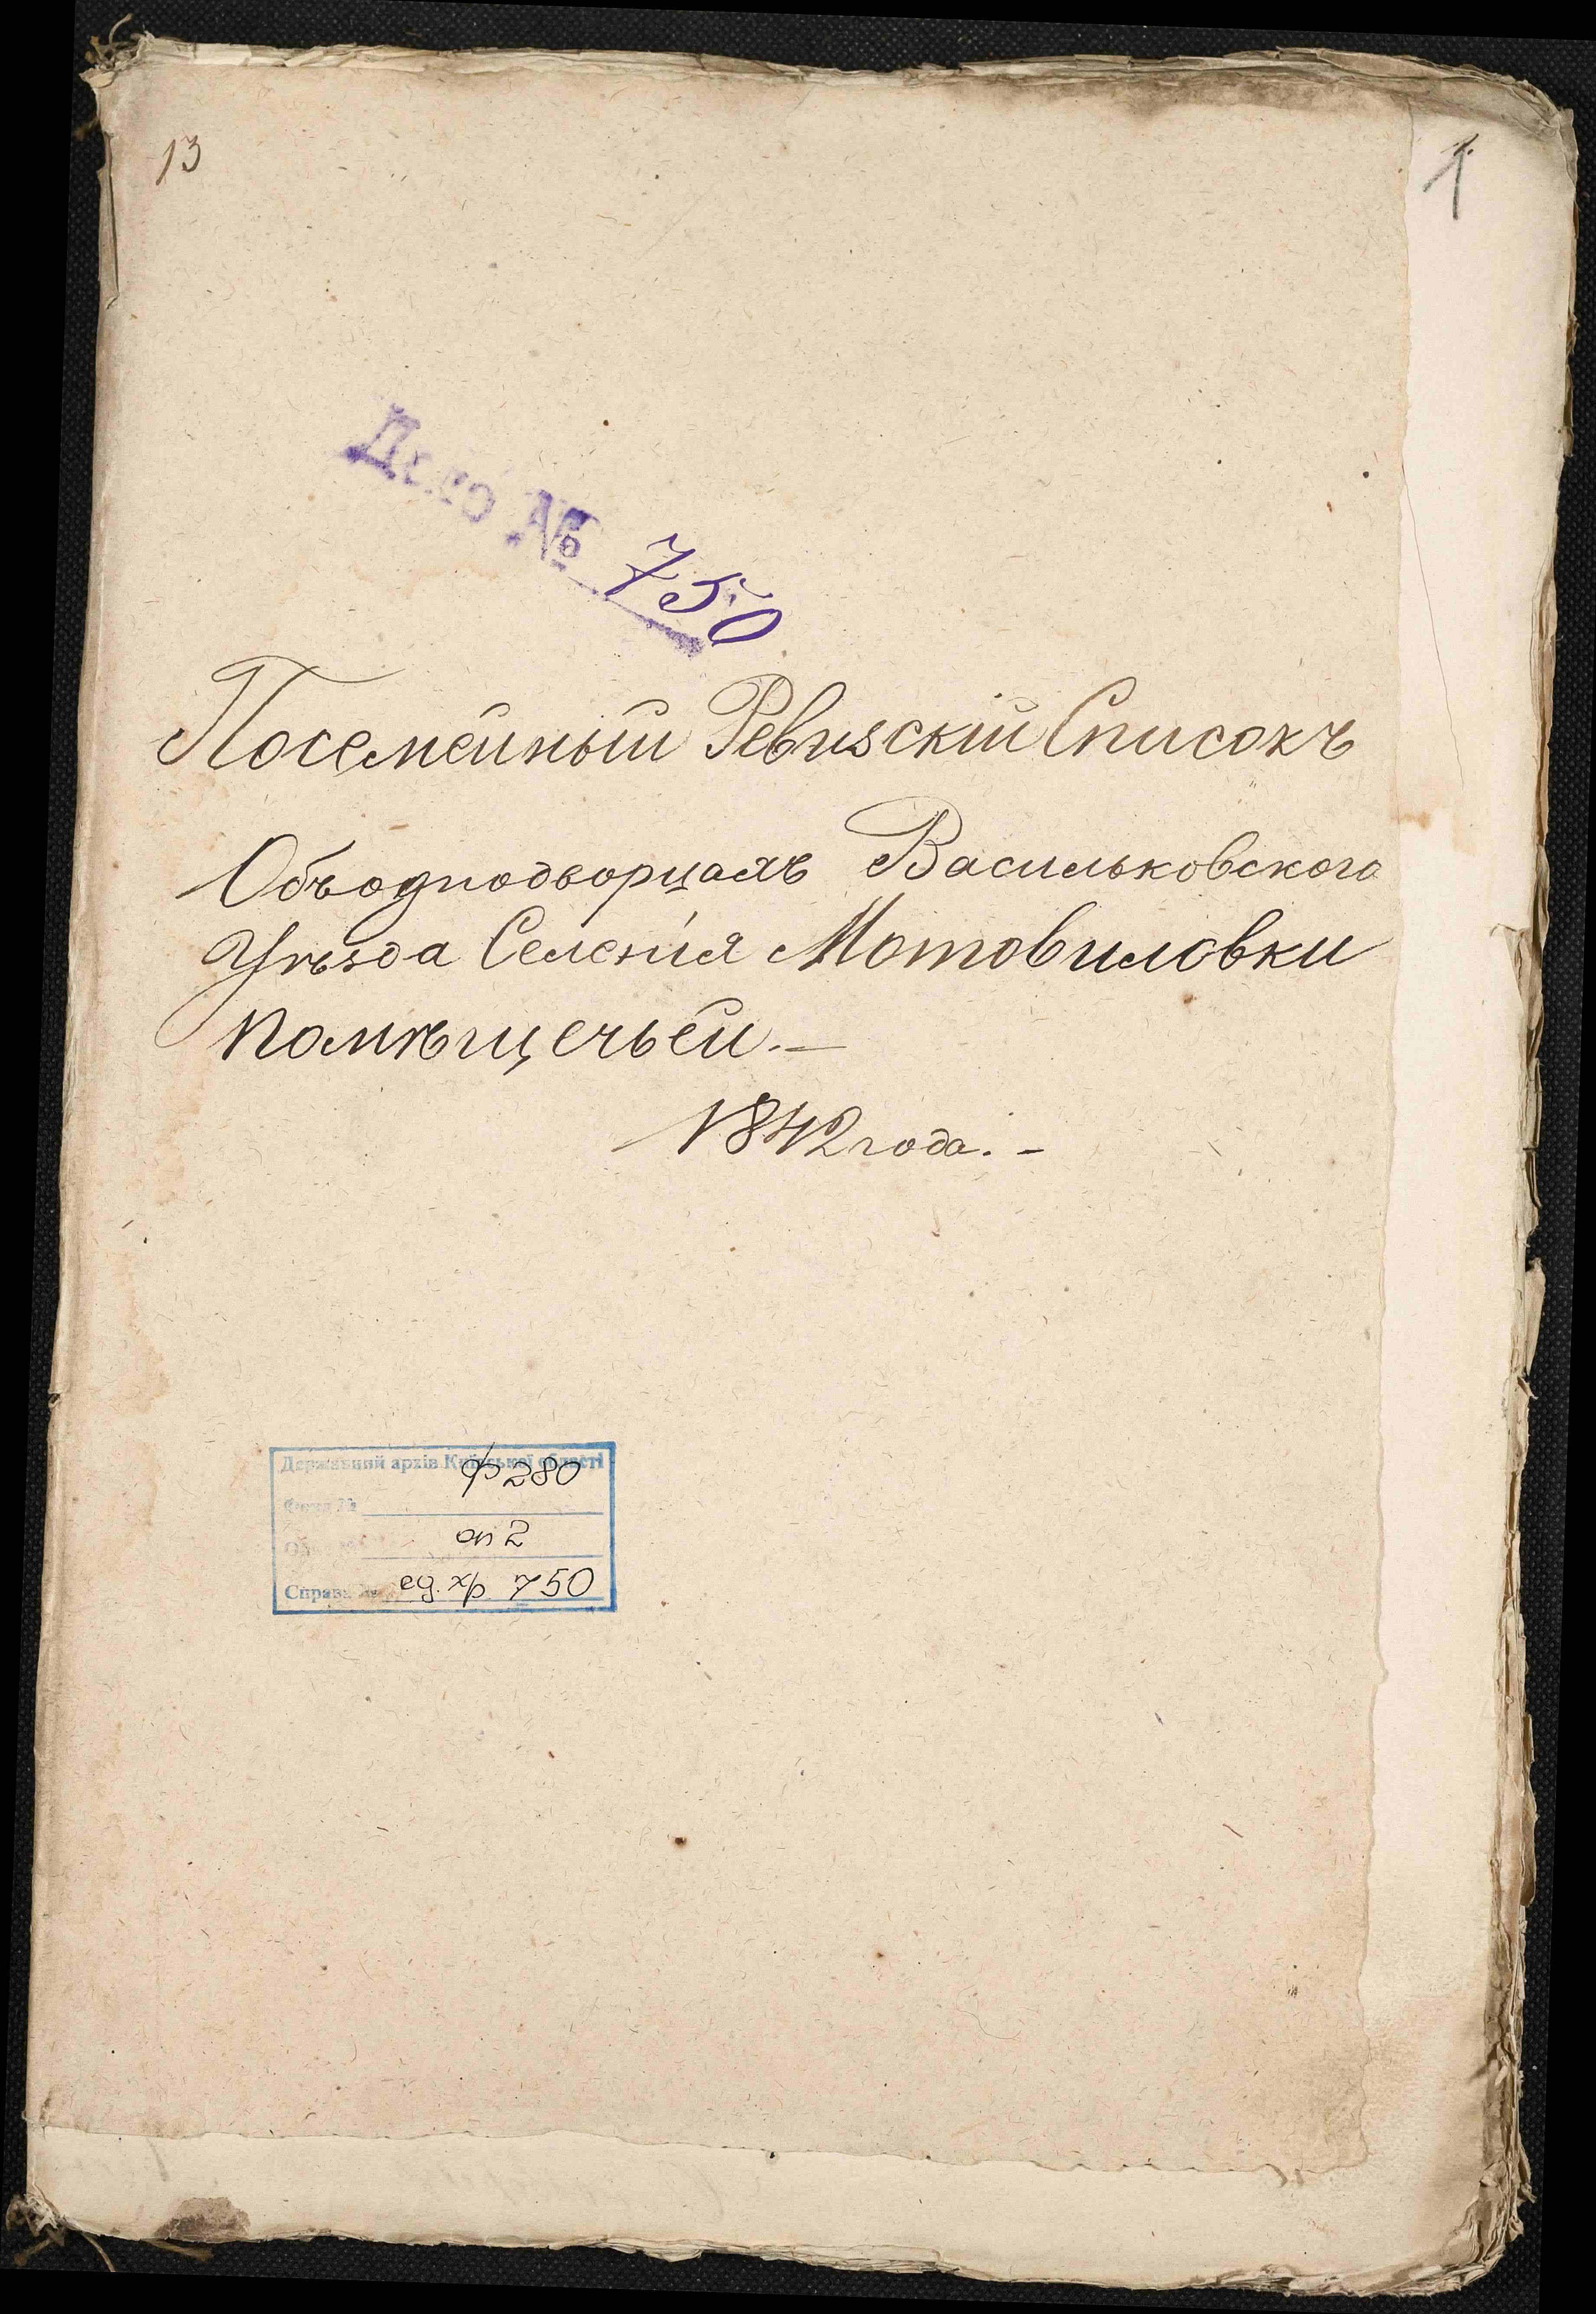 13
1
Дело № 750
Посемейный Ревизскій Списокъ
Объ однодворцахъ Васильковского
Уѣзда Селенія Мотовиловки
помѣщечьей. —
1842 года. -
Державний архів Київської області
ф 280
Фонд №
оп 2
Справа № ед. хр. 750